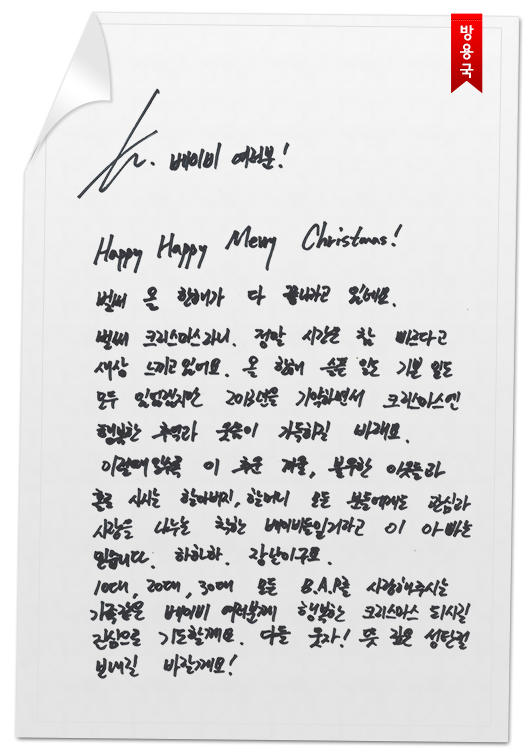 방용국
To. 베이비 여러분!
Happy Happy Merry Christmas!
벌써 온 한해가 다 끝나가고 있네요.
벌써 크리스마스라니. 정말 시간은 참 빠르다고
새삼 느끼고 있어요. 올 한해 슬픈 일도 기쁜 일도
모두 있었겠지만 2013년을 기억하면서 크리스마스엔
행복한 추억과 웃음이 가득하길 바래요.
이럴때일수록 이 추운 겨울, 불우한 이웃들과
홀로 사시는 할아버지, 할머니 모든 분들에게도 관심과
사랑을 나누는 착한 베이비들일거라고 이 아빠는
믿습니다. 하하하. 장난이구요.
10대, 20대, 30대 모든 B.A.P를 사랑해주시는
가족같은 베이비 여러분께 행복한 크리스마스 되시길
진심으로 기도할게요. 다들 웃자! 뜻 깊은 성탄절
보내길 바랄게요!